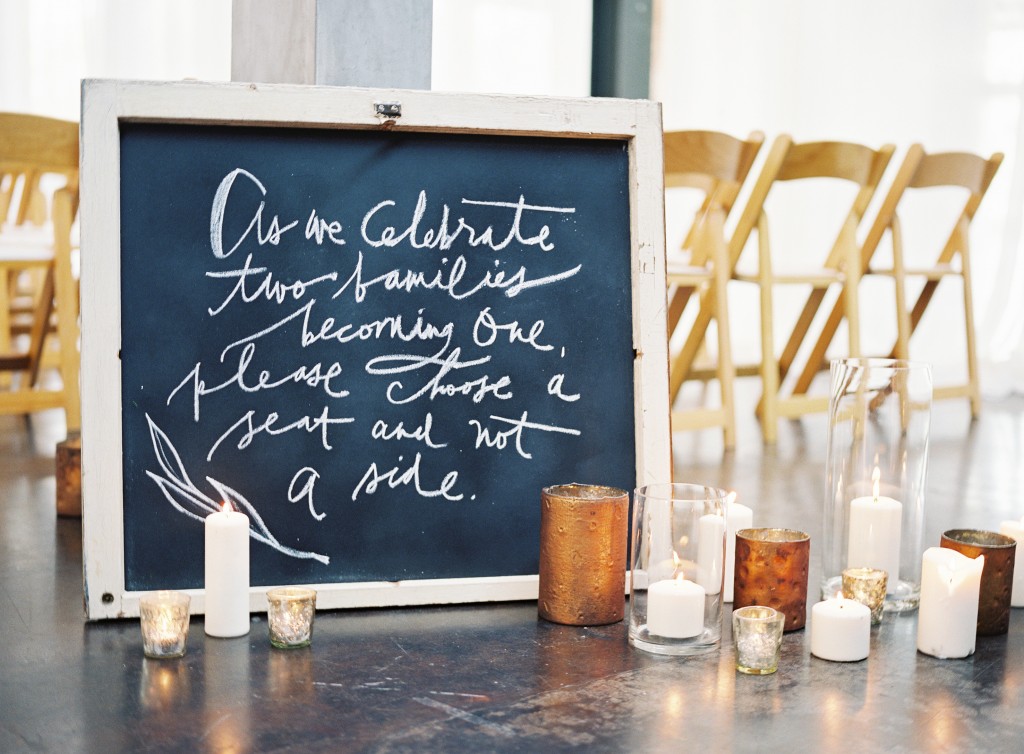 As we celebrate
two families
becoming one,
please choose a
seat and not
a side.